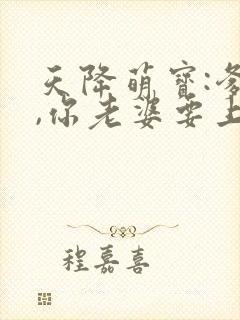 天降萌宝:爹
,你老婆要上
程嘉喜